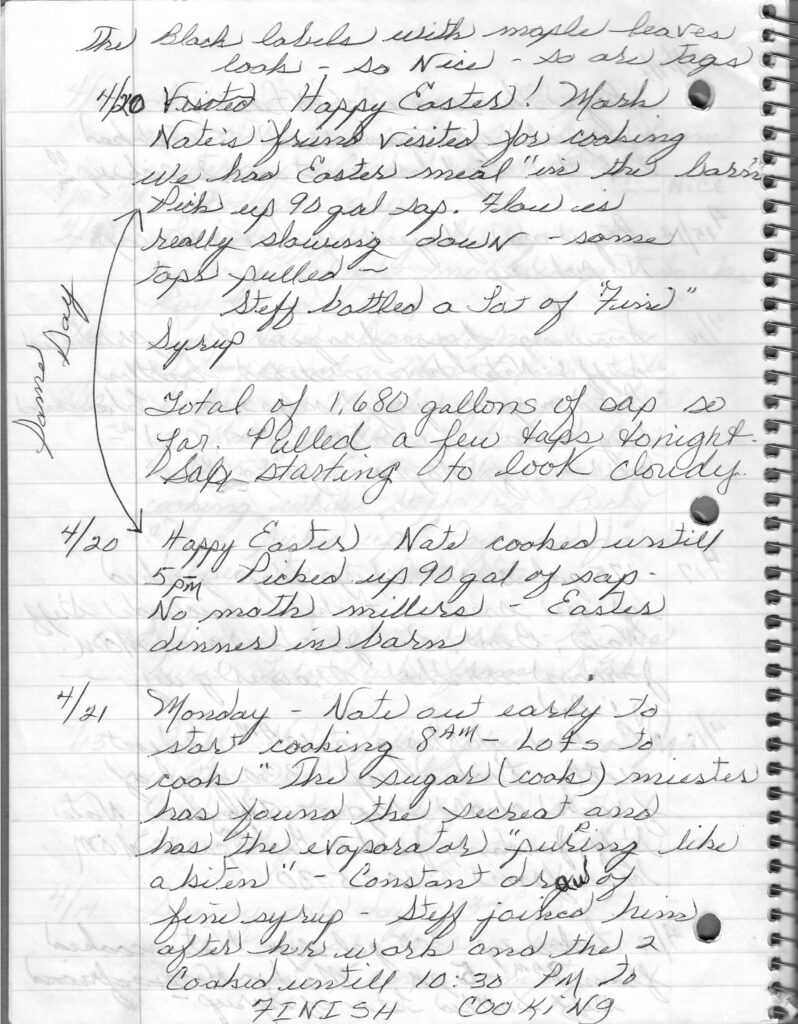 The Black labels with maple leaves
look - so Nice - so are Tags
4/20 Visited Happy Easter! Mark
Nate's friend visited for cooking
we had Easter meal "in the barn"
Pick up 90 gal sap. Flow is
really slowing down - some
taps pulled -
Steff bottled a Lot of "Fini"
Syrup
Same Day
Total of 1,680 gallons of sap so
far. Pulled a few taps tonight.
Sap starting to look cloudy.
4/20 Happy Easter Nate cooked untill
5pm Picked up 90 gal of sap.
No moth millers - Easter
dinner in barn
4/21 Monday - Nate out early to
start cooking 8AM - Lots to
cook " The sugar (cook) miester
has found the secreat and
has the evaporator "puring like
a kiten" - Constant draw of
fine syrup - Steff joined him
after her work and the 2
Cooked untill 10:30 PM to
FINISH COOKiNG